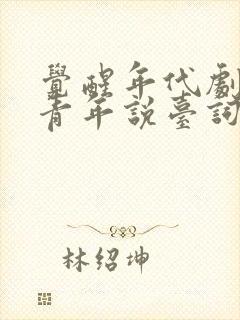 覺醒年代劇
青年說臺詞
林紹坤